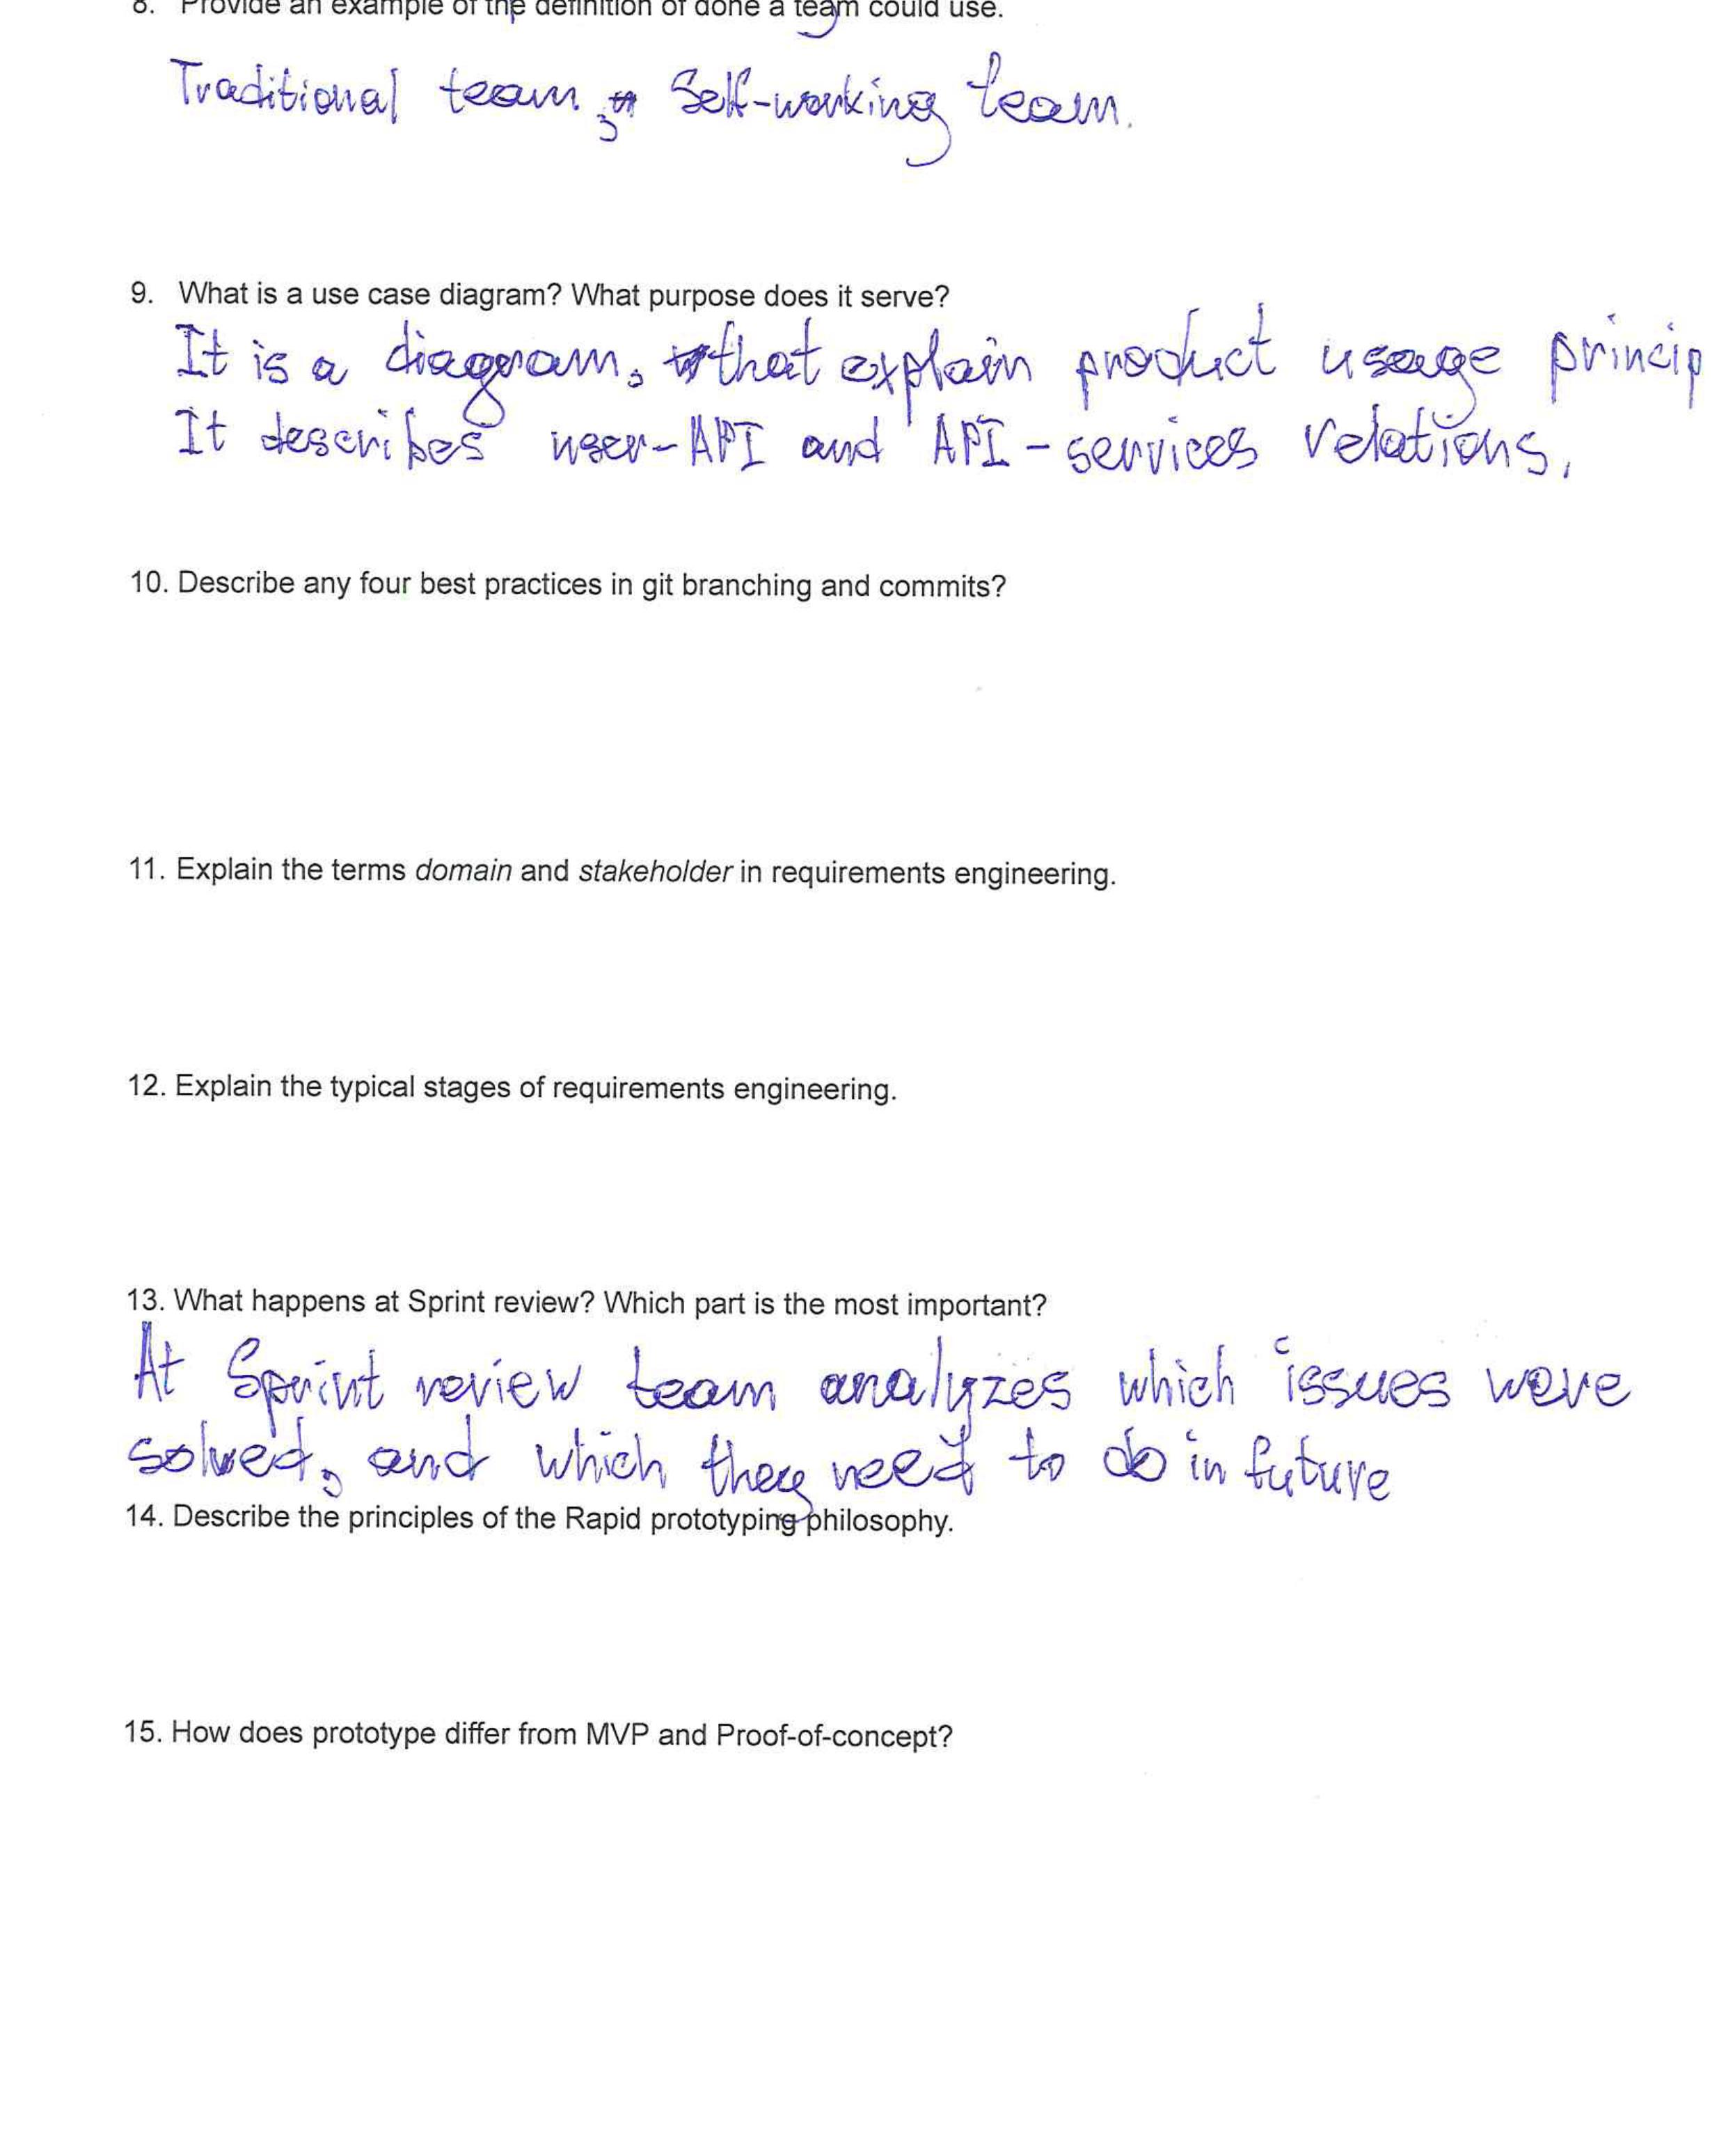 8. Provide an example of the definition of done a team could use.
Traditional team, Self-working team.
9. What is a use case diagram? What purpose does it serve?
It is a diagram, that explain product usage princip
It describes user-API and API-services relations.
10. Describe any four best practices in git branching and commits?
11. Explain the terms domain and stakeholder in requirements engineering.
12. Explain the typical stages of requirements engineering.
13. What happens at Sprint review? Which part is the most important?
At Sprint review team analyzes which issues were
solved, and which they need to do in future
14. Describe the principles of the Rapid prototyping philosophy.
15. How does prototype differ from MVP and Proof-of-concept?